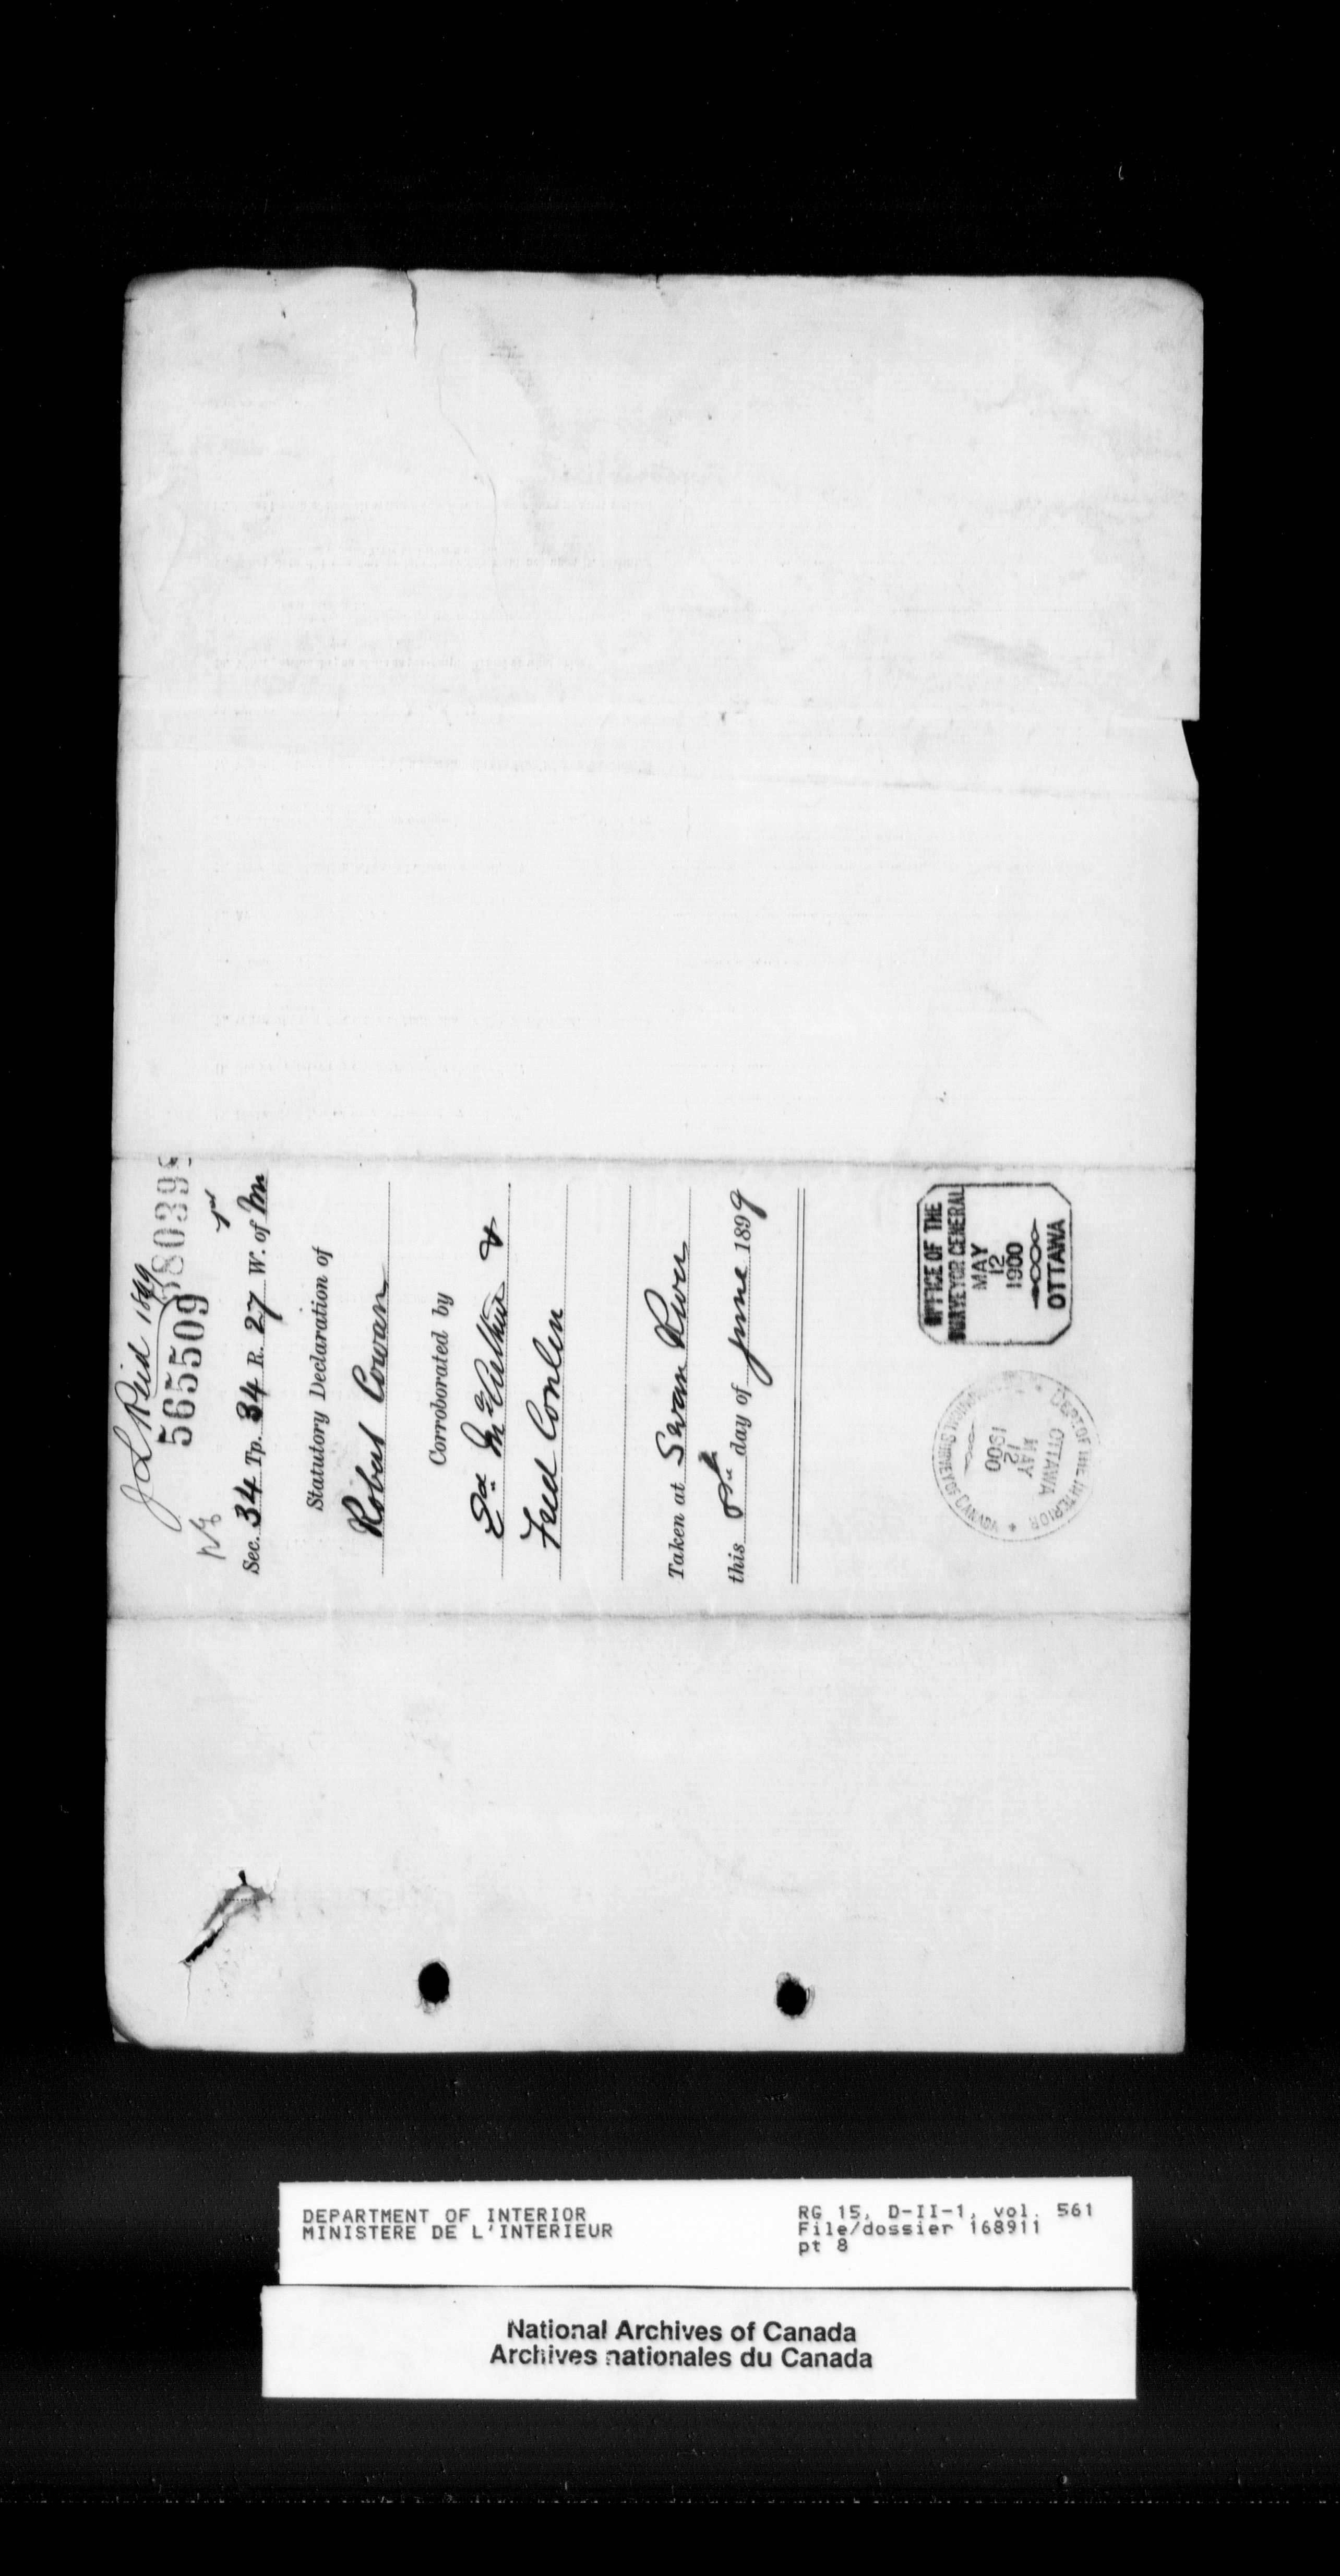 J L Reid 1899
565509
Sec. 34 Tp. 34 R. 27 W. of 1st Mer
Statutory Declaration of
Robert Cowan
Corroborated by
McArthur &
Fred Conlin
Taken at Swan River
this 8th day of June 1899
OFFICE OF THE
SURVEYOR GENERAL
MAY
12
1900
OTTAWA
DEPT OF THE INTERIOR
OTTAWA
MAY
12
1900
SURVEYS OF CANADA
DEPARTMENT OF INTERIOR
MINISTERE DE L'INTERIEUR
RG 15, D-II-1, vol. 561
File/dossier 168911
pt 8
National Archives of Canada
Archives nationales du Canada